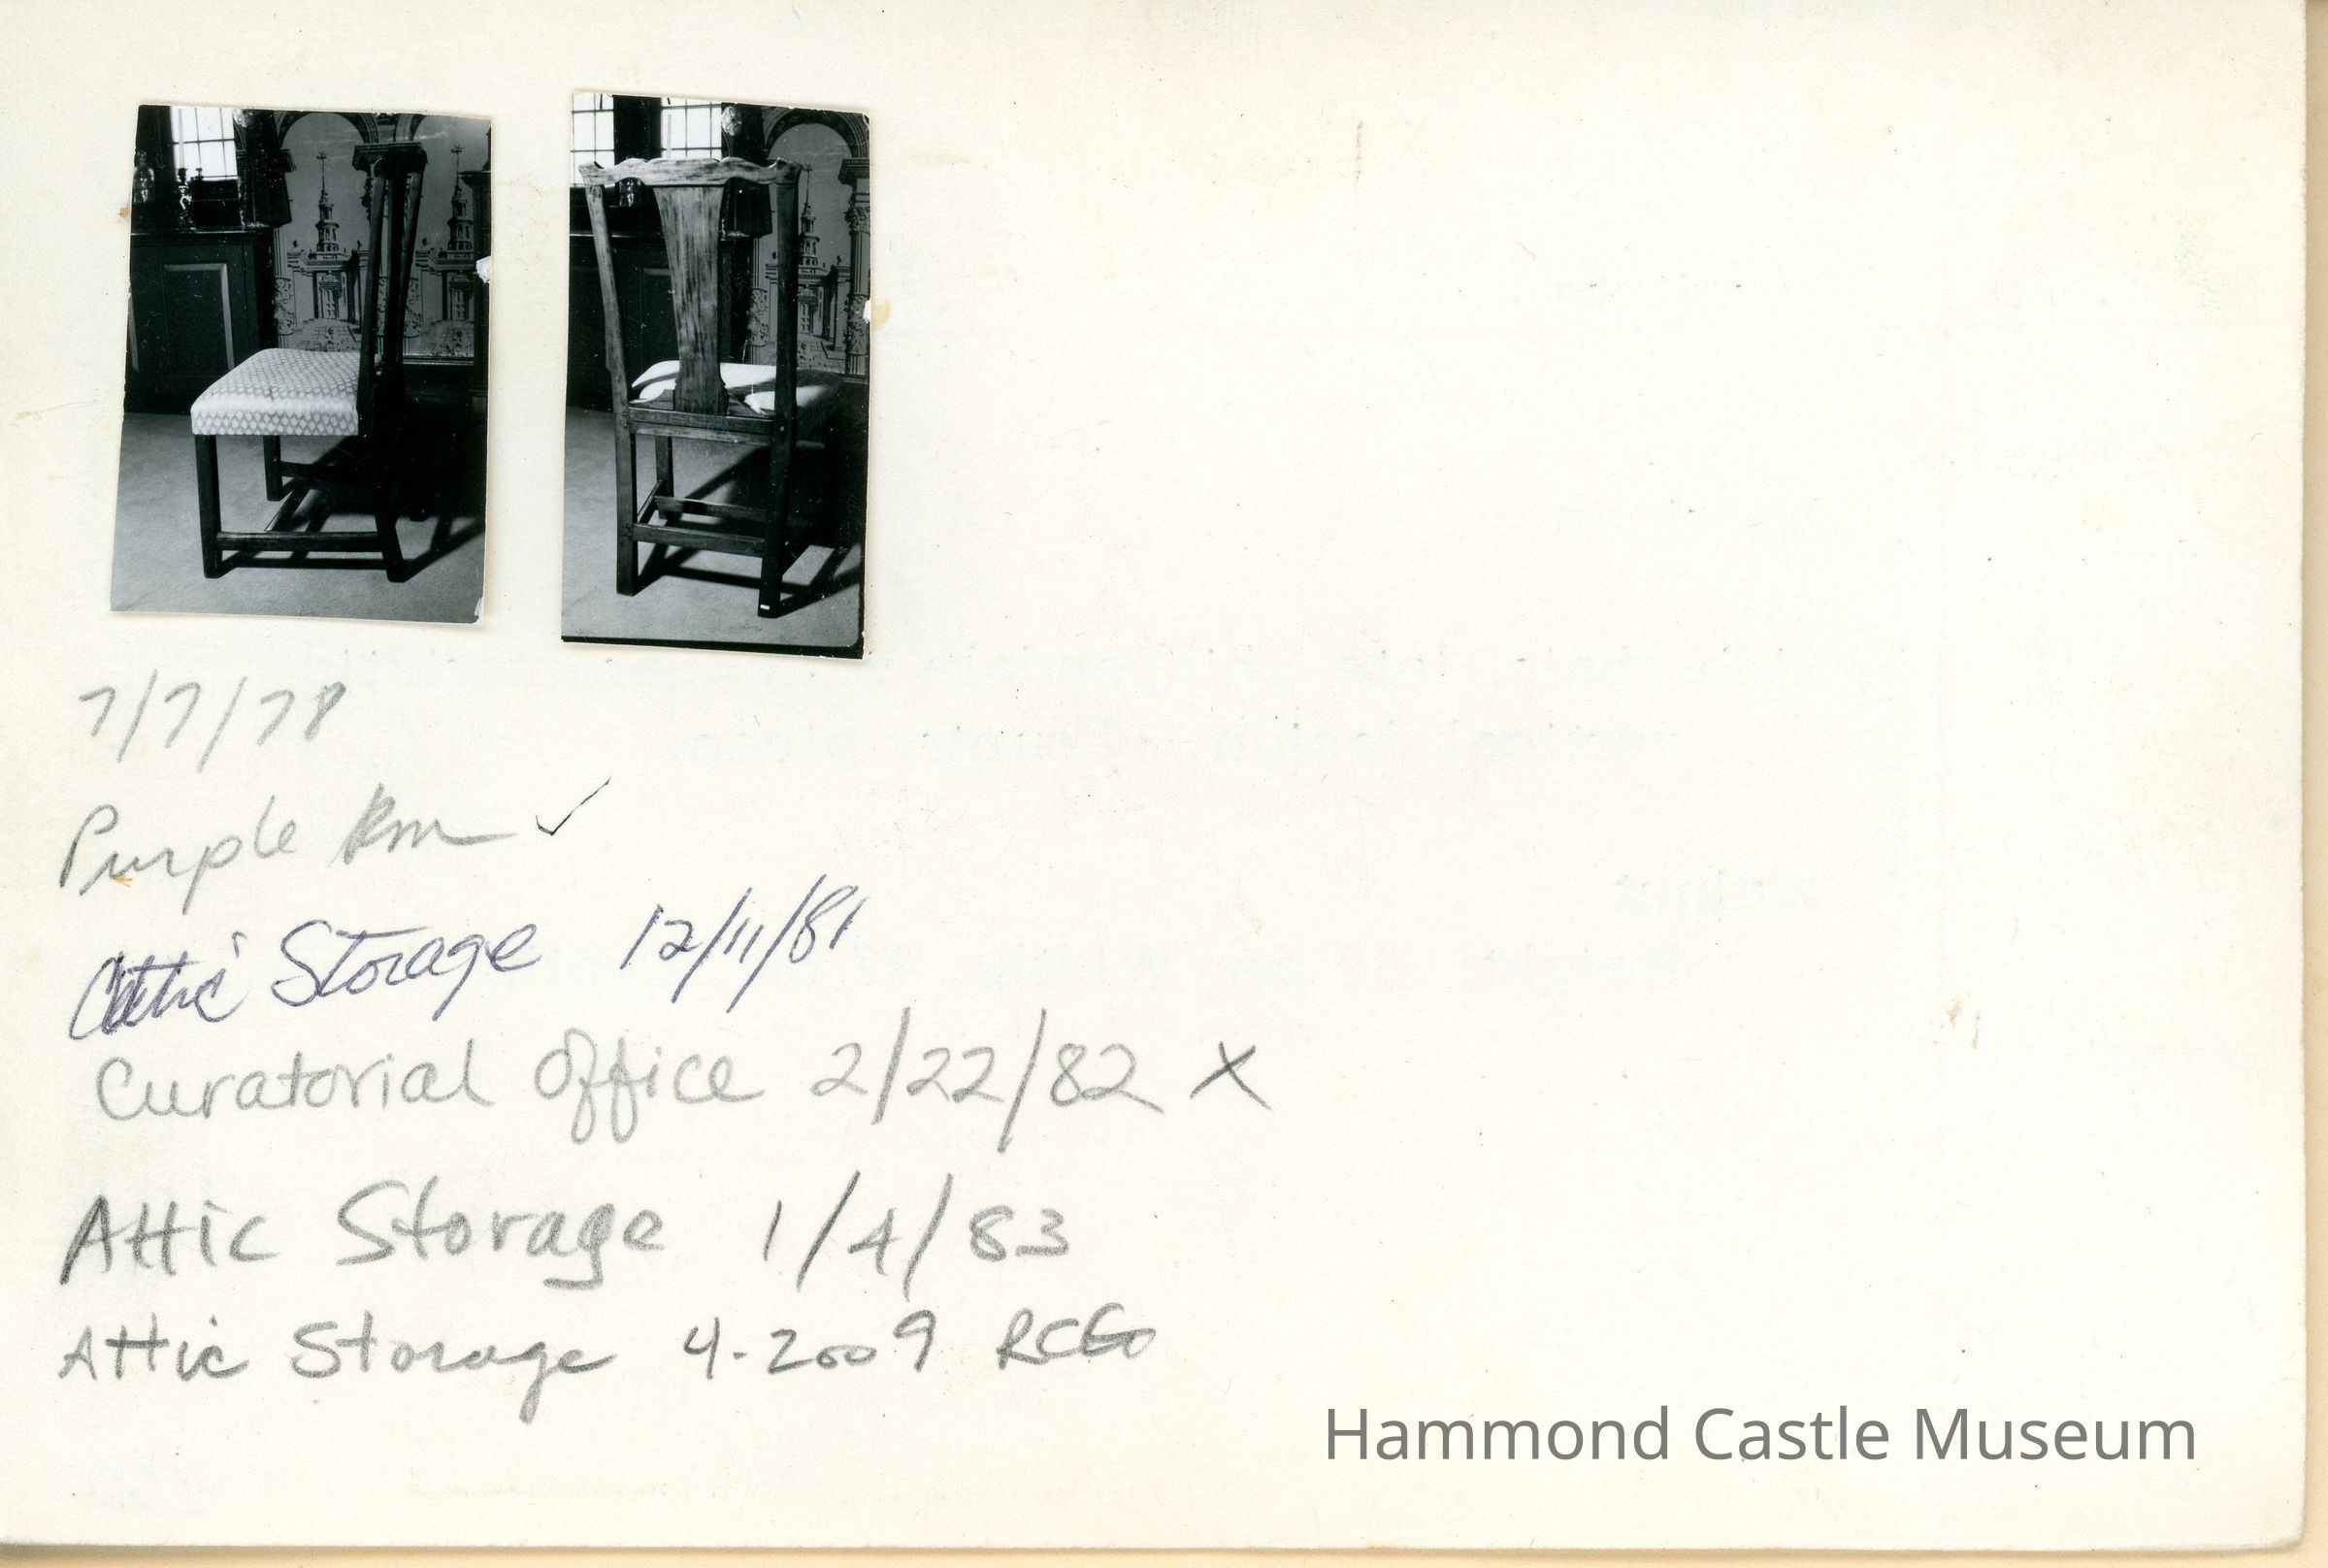 7/7/78
Purple Rm ✓
Attic Storage 12/11/81
Curatorial Office 2/22/82 X
Attic Storage 1/4/83
Attic Storage 4-2009
Hammond Castle Museum